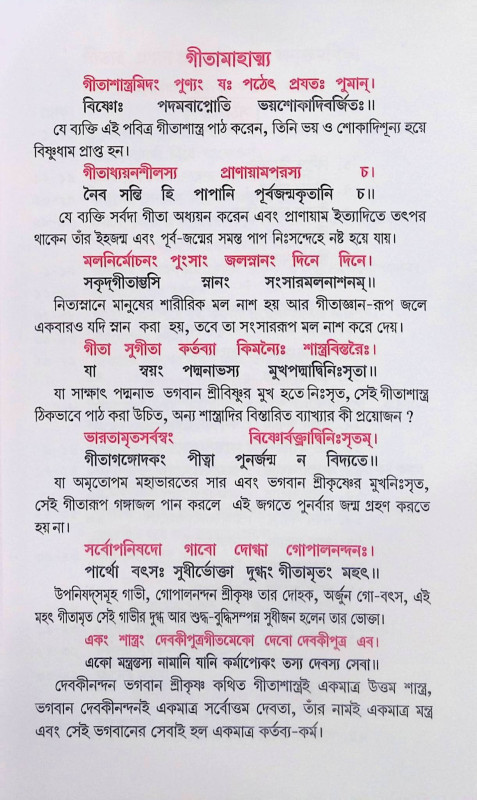 গীতামাহাত্ম্য
গীতাশাস্ত্রমিদং পুণ্যং যঃ পঠেৎ প্রযতঃ পুমান্।
বিষ্ণোঃ পদমবাপ্নোতি ভয়শোকাদিবর্জিতঃ॥
যে ব্যক্তি এই পবিত্র গীতাশাস্ত্র পাঠ করেন, তিনি ভয় ও শোকাদিশূন্য হয়ে
বিষ্ণুধাম প্রাপ্ত হন।
গীতাধ্যয়নশীলস্য প্রাণায়ামপরস্য চ।
নৈব সন্তি হি পাপানি পূর্বজন্মকৃতানি চ॥
যে ব্যক্তি সর্বদা গীতা অধ্যয়ন করেন এবং প্রাণায়াম ইত্যাদিতে তৎপর
থাকেন তাঁর ইহজন্ম এবং পূর্ব-জন্মের সমস্ত পাপ নিঃসন্দেহে নষ্ট হয়ে যায়।
মলনির্মোচনং পুংসাং জলস্নানং দিনে দিনে।
সকৃদ্গীতাম্ভসি স্নানং সংসারমলনাশনম্॥
নিত্যস্নানে মানুষের শারীরিক মল নাশ হয় আর গীতাজ্ঞান-রূপ জলে
একবারও যদি স্নান করা হয়, তবে তা সংসাররূপ মল নাশ করে দেয়।
গীতা সুগীতা কর্তব্যা কিমন্যৈঃ শাস্ত্রবিস্তরৈঃ।
যা স্বয়ং পদ্মনাভস্য মুখপদ্মাদ্বিনিঃসৃতা॥
যা সাক্ষাৎ পদ্মনাভ ভগবান শ্রীবিষ্ণুর মুখ হতে নিঃসৃত, সেই গীতাশাস্ত্র
ঠিকভাবে পাঠ করা উচিত, অন্য শাস্ত্রাদির বিস্তারিত ব্যাখ্যার কী প্রয়োজন ?
ভারতামৃতসর্বস্বং বিষ্ণোর্বক্ত্রাদ্বিনিঃসৃতম্।
গীতাগঙ্গোদকং পীত্বা পুনর্জন্ম ন বিদ্যতে॥
যা অমৃতোপম মহাভারতের সার এবং ভগবান শ্রীকৃষ্ণের মুখনিঃসৃত,
সেই গীতারূপ গঙ্গাজল পান করলে এই জগতে পুনর্বার জন্ম গ্রহণ করতে
হয় না।
সর্বোপনিষদো গাবো দোগ্ধা গোপালনন্দনঃ।
পার্থো বৎসঃ সুধীর্ভোক্তা দুগ্ধং গীতামৃতং মহৎ॥
উপনিষদ্‌সমূহ গাভী, গোপালনন্দন শ্রীকৃষ্ণ তার দোহক, অর্জুন গো-বৎস, এই
মহৎ গীতামৃত সেই গাভীর দুগ্ধ আর শুদ্ধ-বুদ্ধিসম্পন্ন সুধীজন হলেন তার ভোক্তা।
একং শাস্ত্রং দেবকীপুত্রগীতমেকো দেবো দেবকীপুত্র এব।
একো মন্ত্রস্তস্য নামানি যানি কর্মাপ্যেকং তস্য দেবস্য সেবা॥
দেবকীনন্দন ভগবান শ্রীকৃষ্ণ কথিত গীতাশাস্ত্রই একমাত্র উত্তম শাস্ত্র,
ভগবান দেবকীনন্দনই একমাত্র সর্বোত্তম দেবতা, তাঁর নামই একমাত্র মন্ত্র
এবং সেই ভগবানের সেবাই হল একমাত্র কর্তব্য-কর্ম।